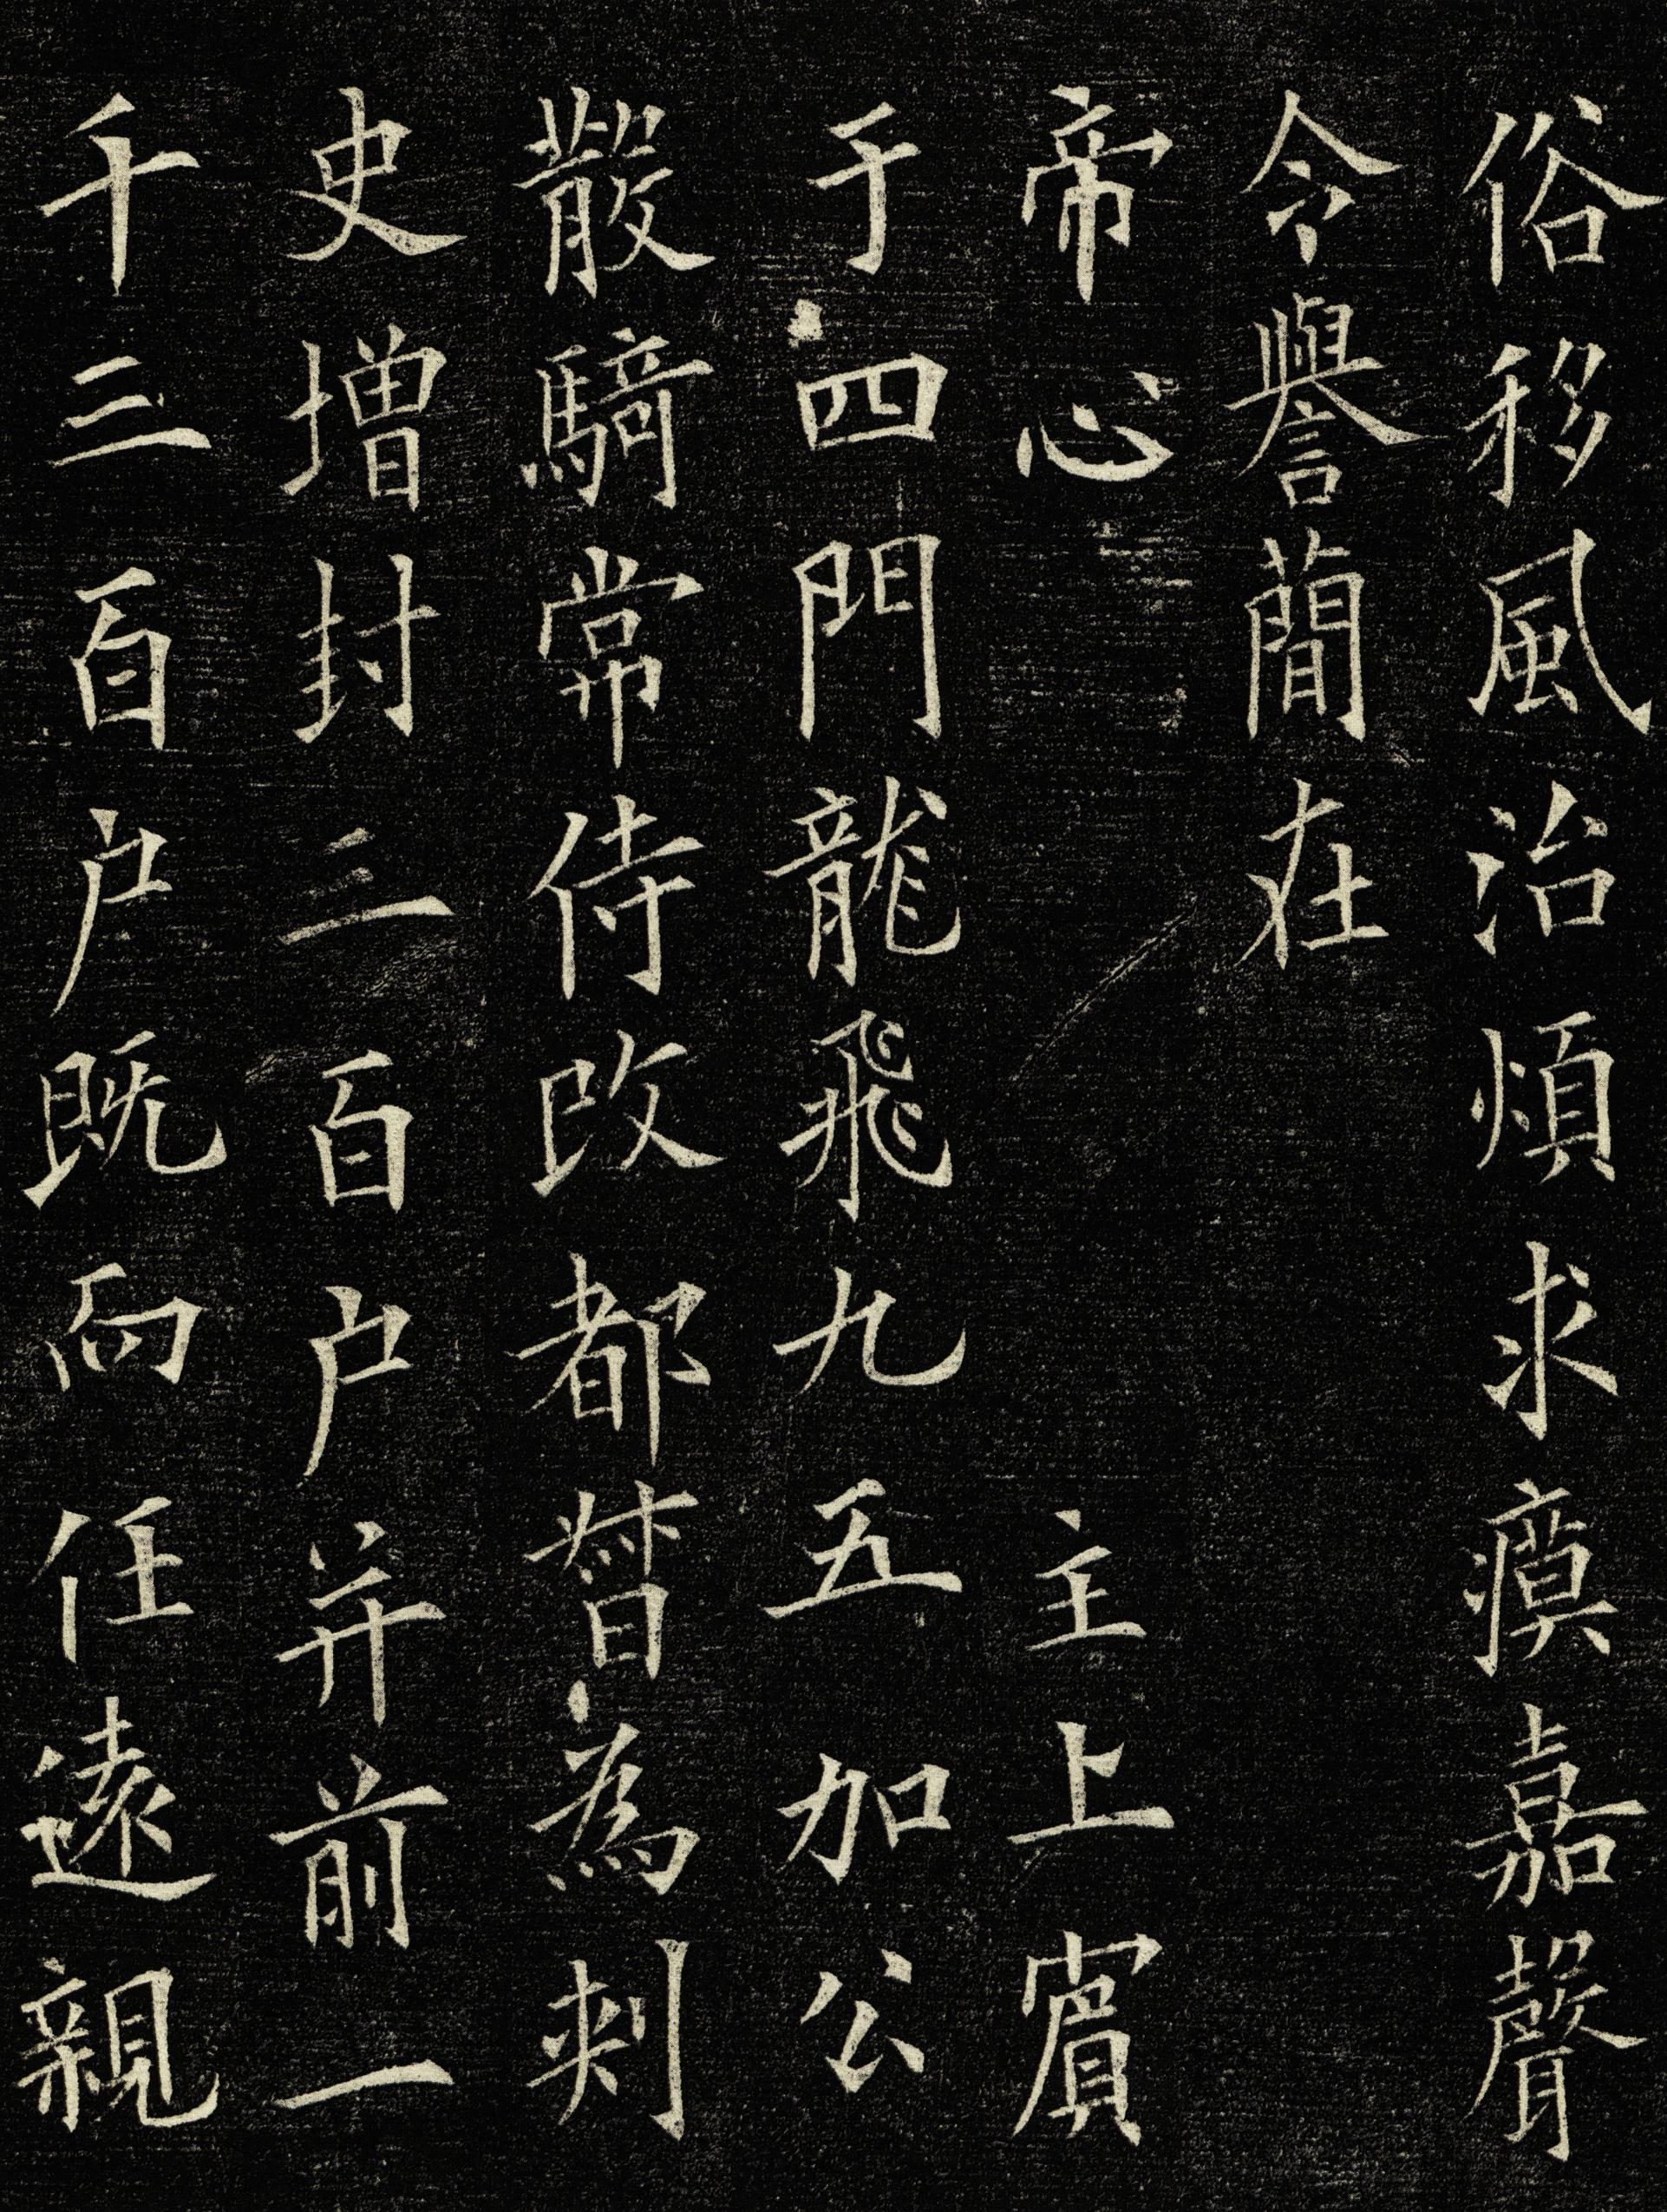 俗移風治煩求瘼嘉聲
令譽蕳在
帝心 主上賔
于四門龍飛九五加公
散騎常侍改都督為刺
史增封三百戶并前一
千三百戶既而任遠親